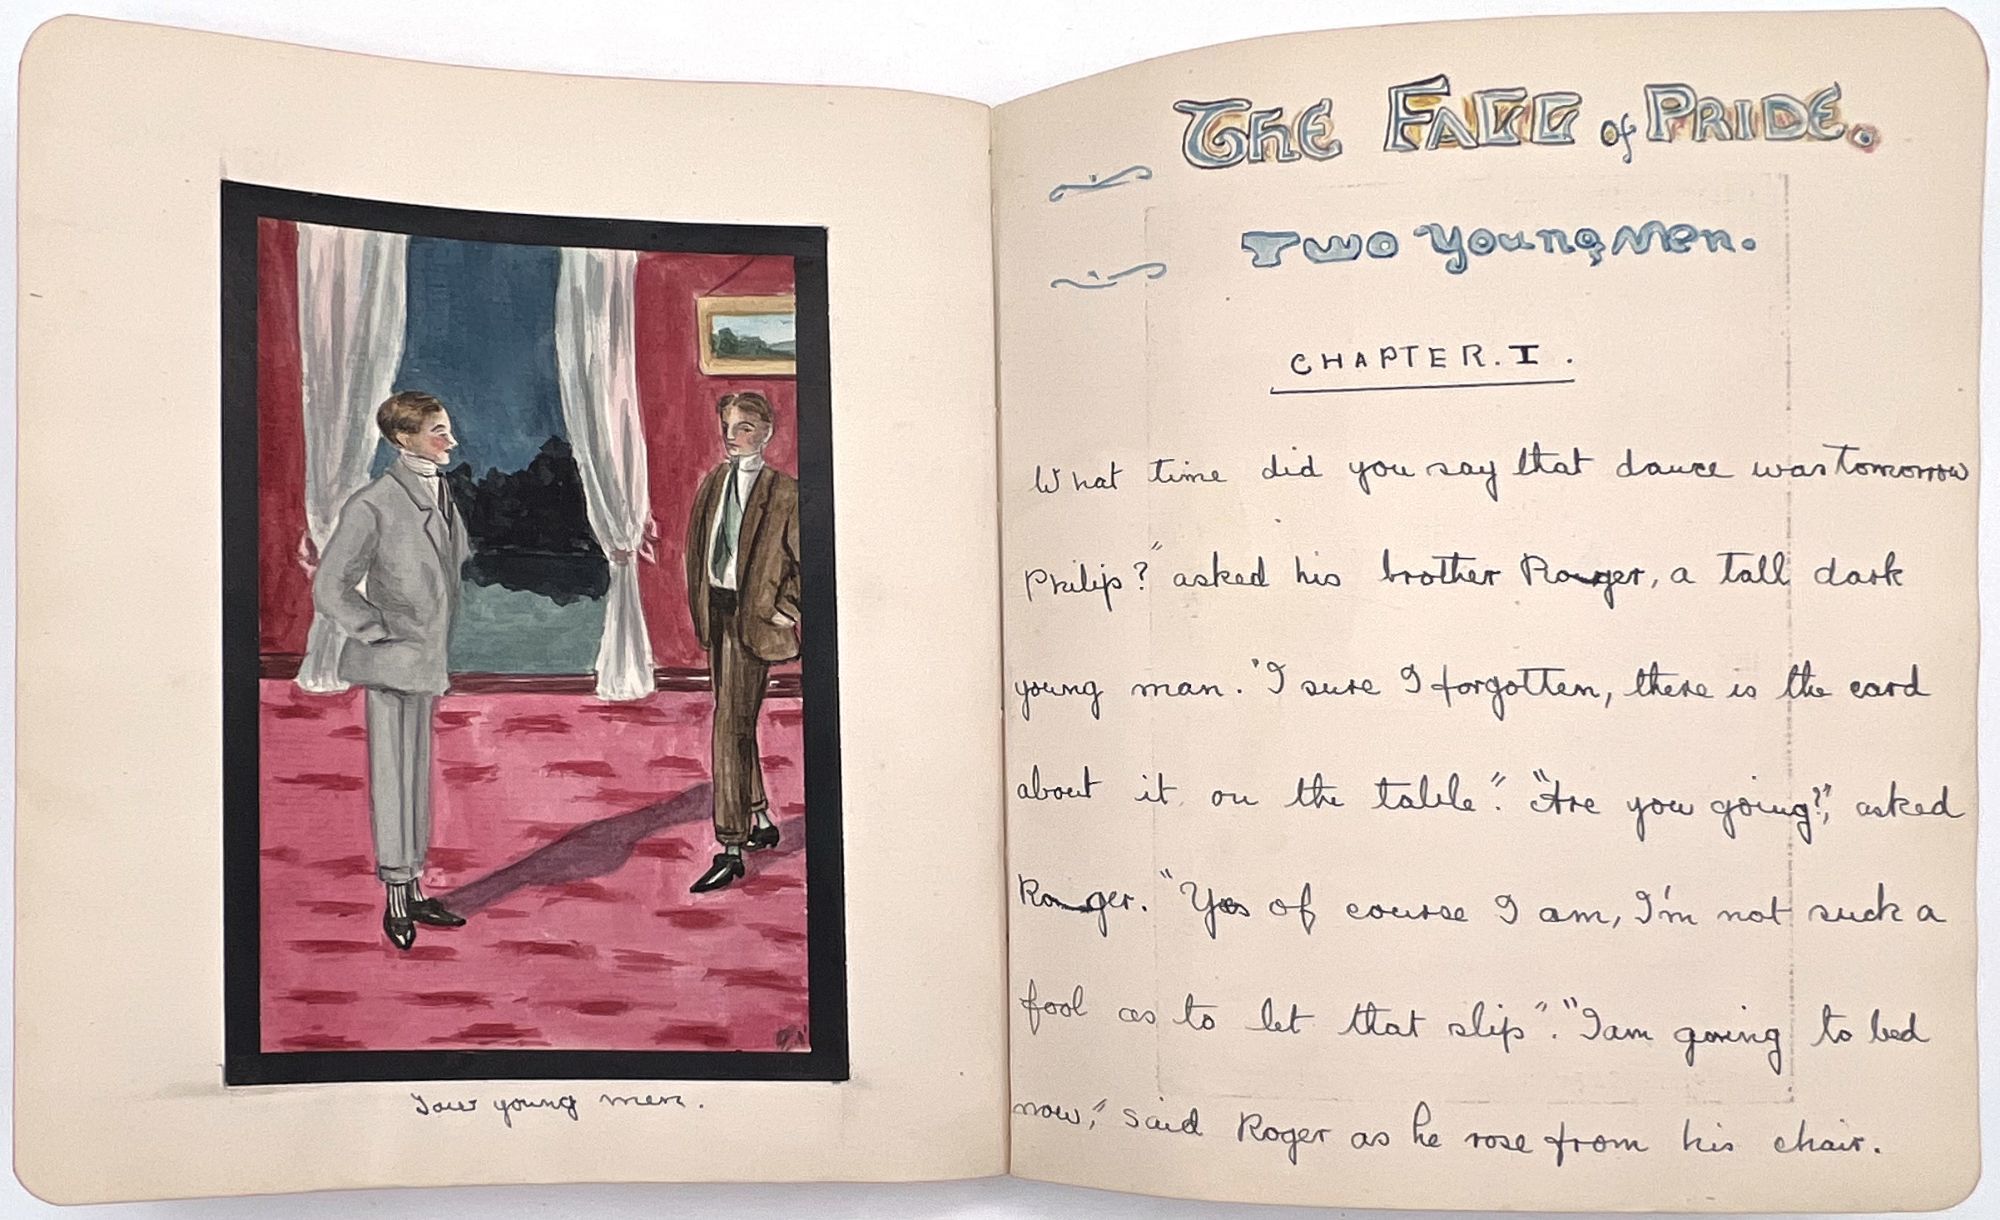 Tow young men.
The Fall of Pride.
Two Young Men.
CHAPTER. I.
What time did you say that dance was tomorrow
Philip?" asked his brother Roger, a tall dark
young man. "I sure I forgotten, there is the card
about it on the table". "Are you going?", asked
Roger. "Yes of course I am, I'm not such a
fool as to let that slip". "I am going to bed
now," said Roger as he rose from his chair.